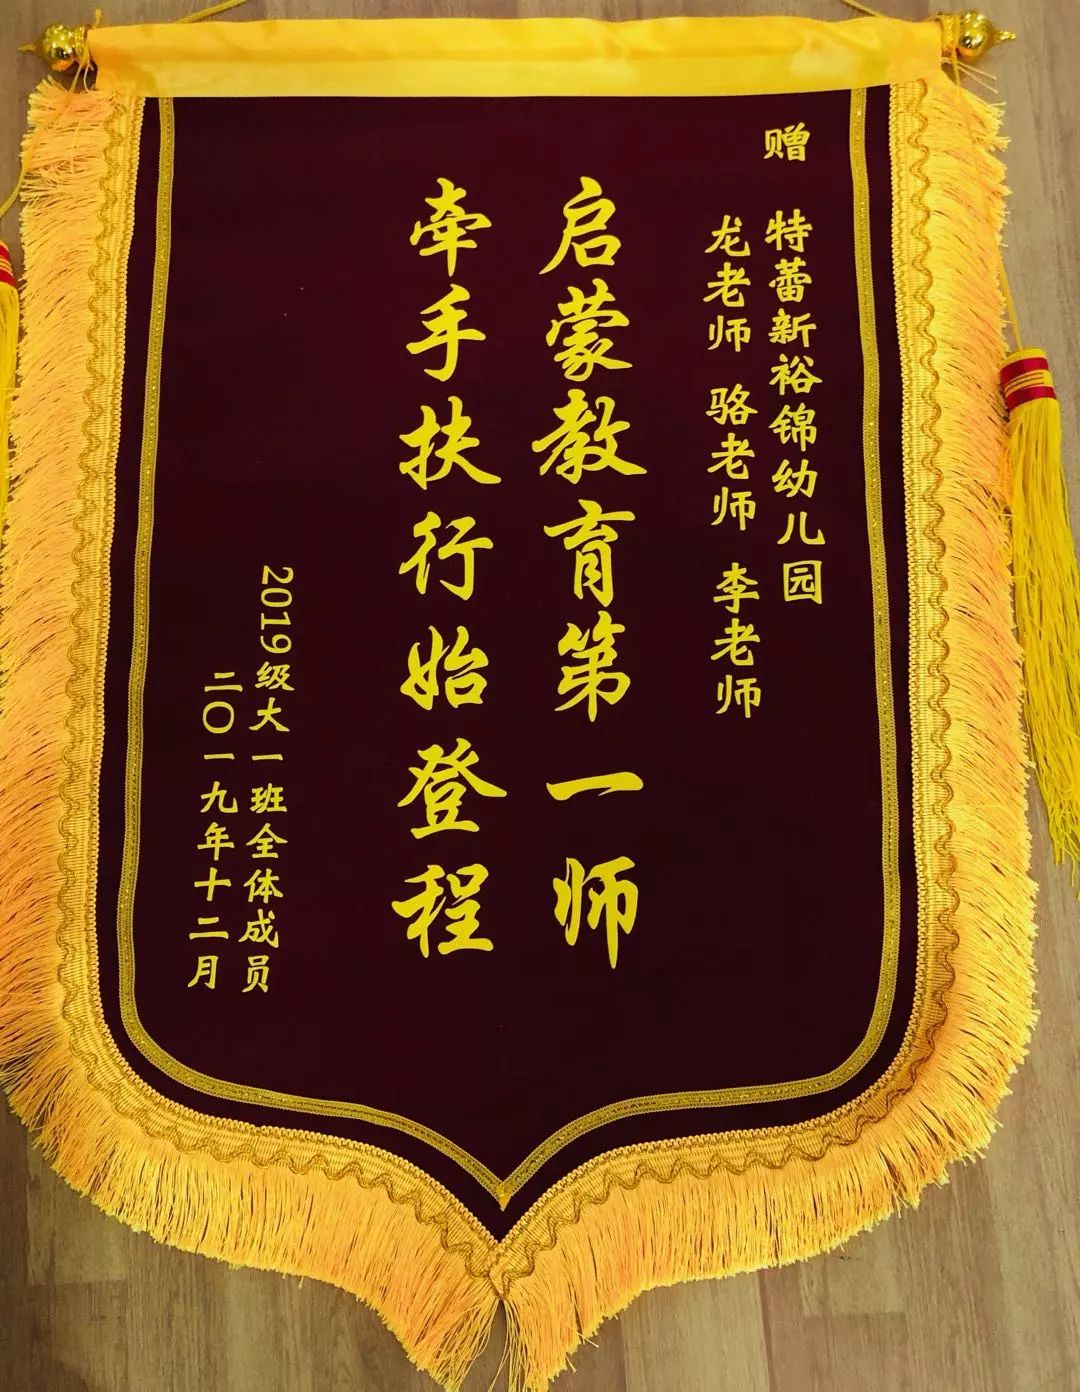 赠 特蕾新裕锦幼儿园
龙老师 骆老师 李老师
启蒙教育第一师
牵手扶行始登程
2019级大一班全体成员
二〇一九年十二月